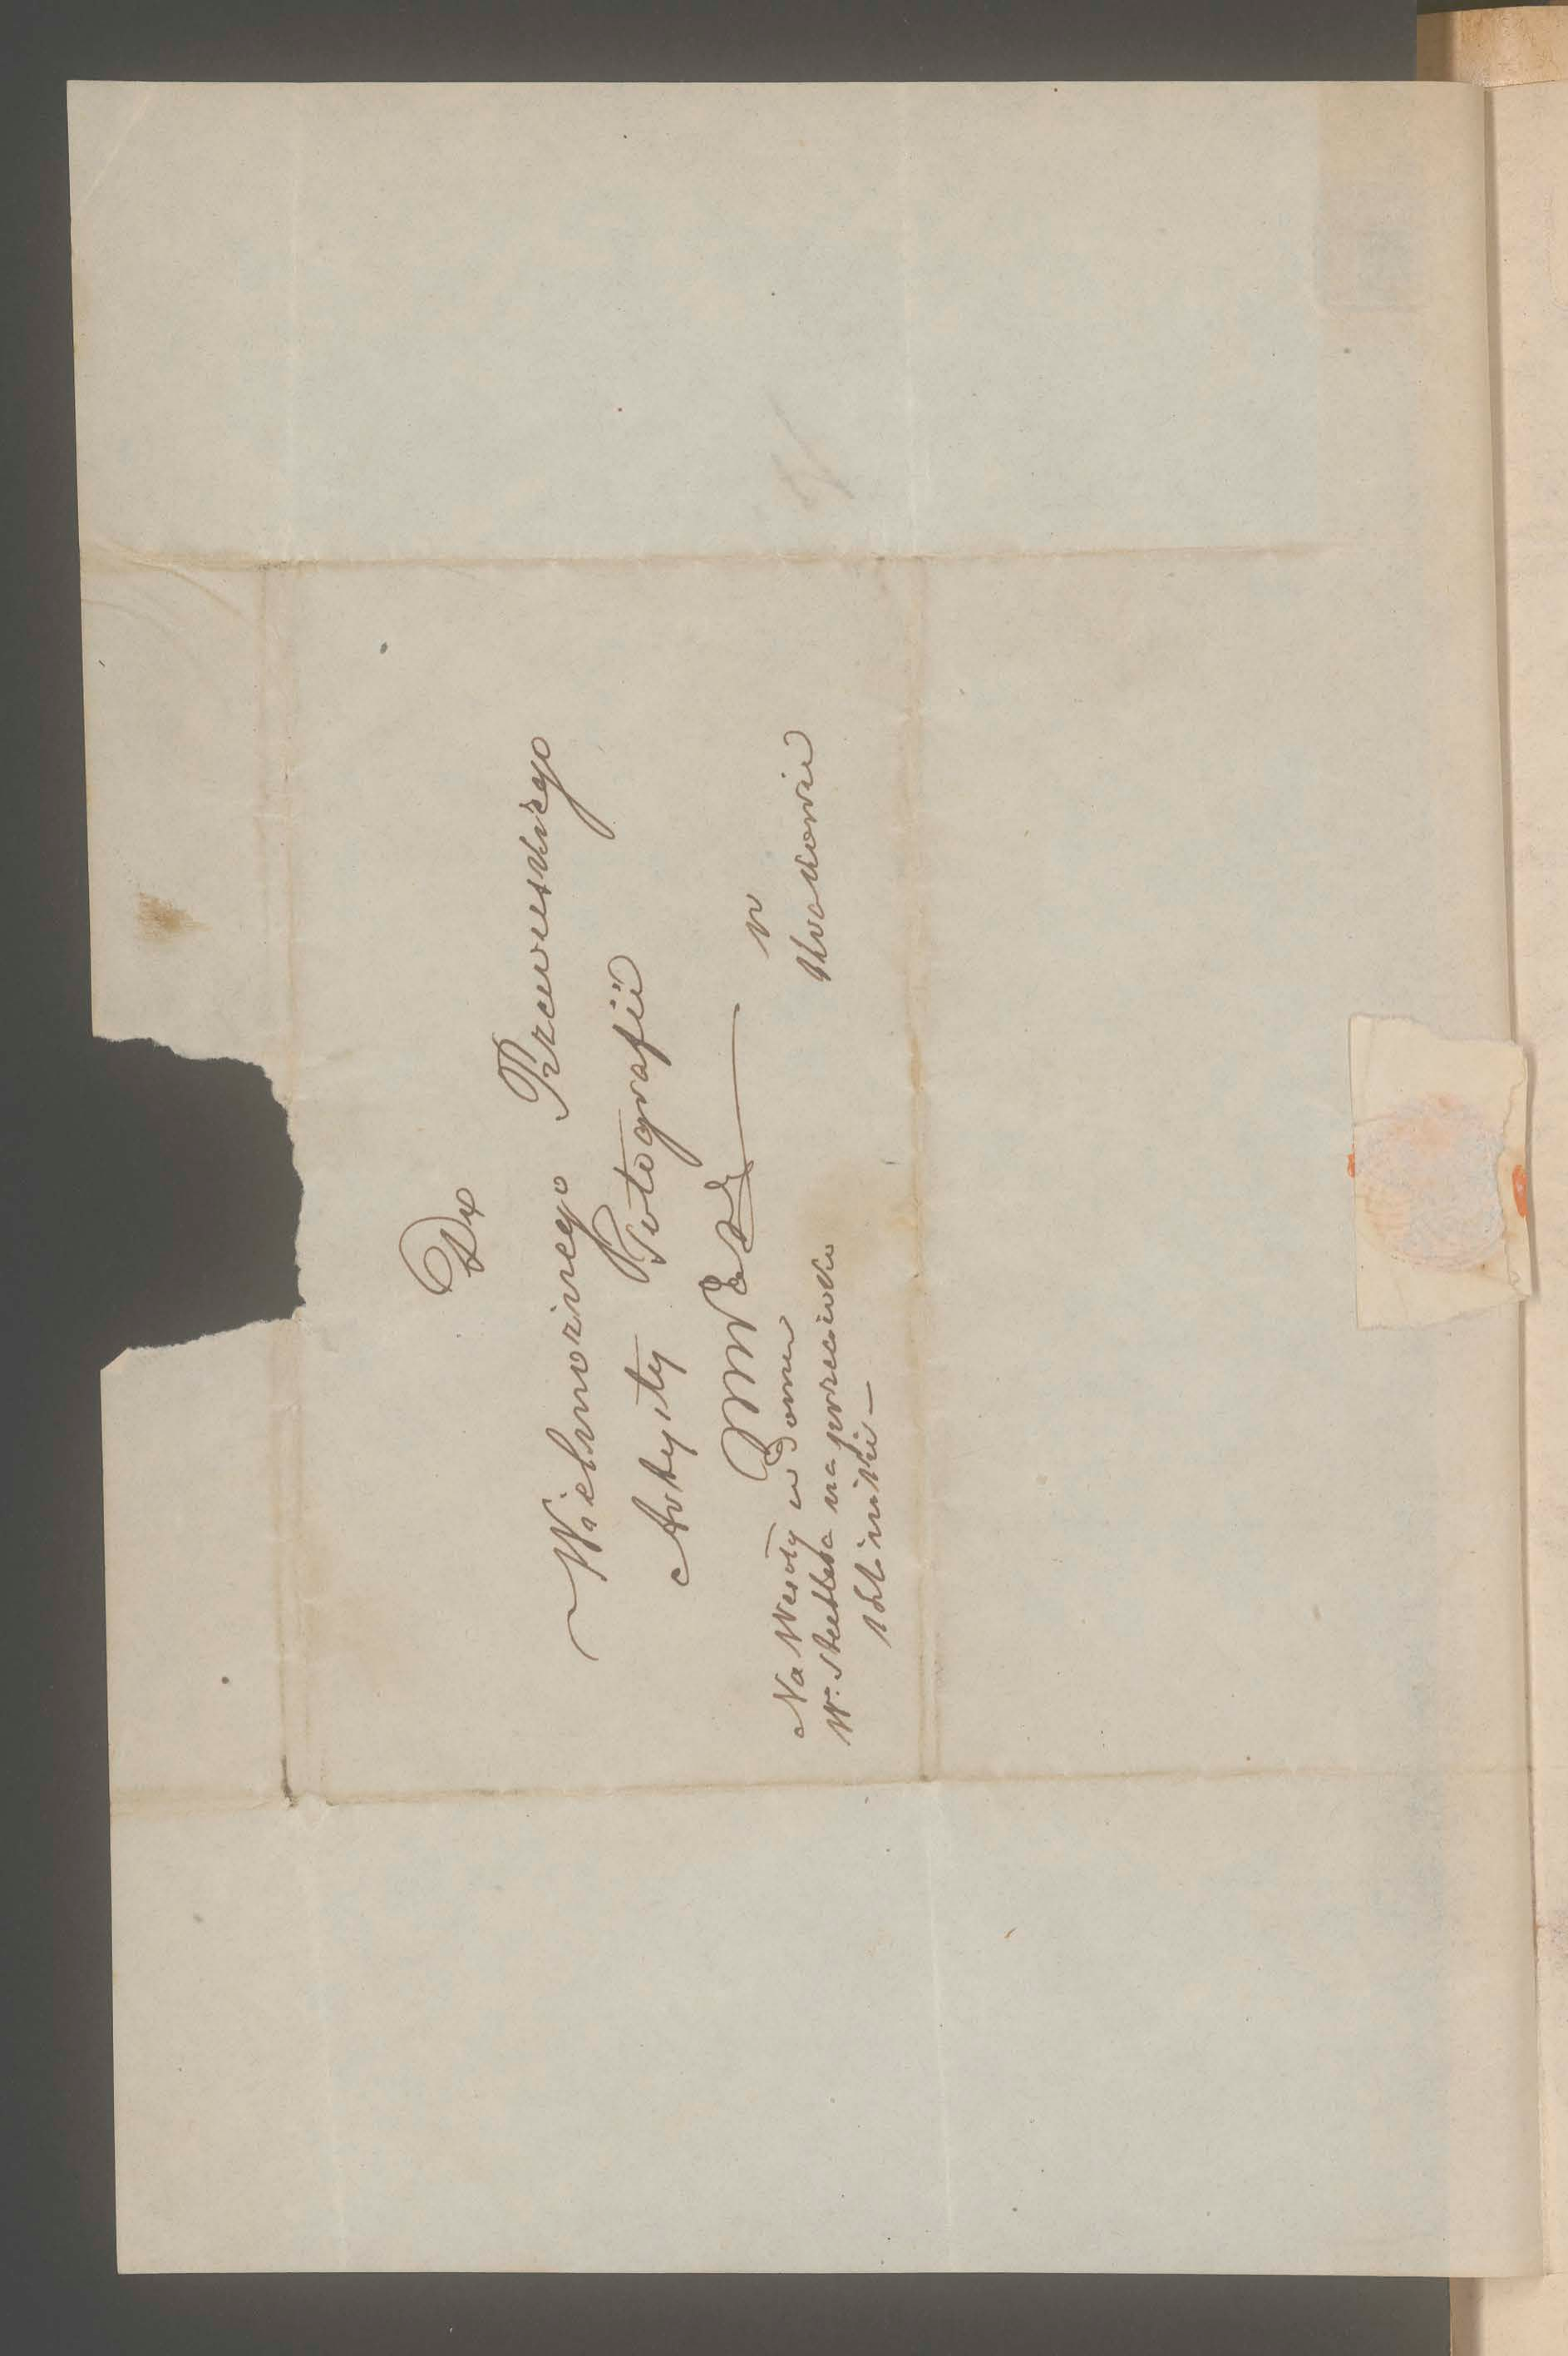 Do
Wielmożnego Rzewuskiego
Artysty Fotografii
WWP
w
Krakowie
Na Wesoły w Domu
W. Stehlika na przeciwko